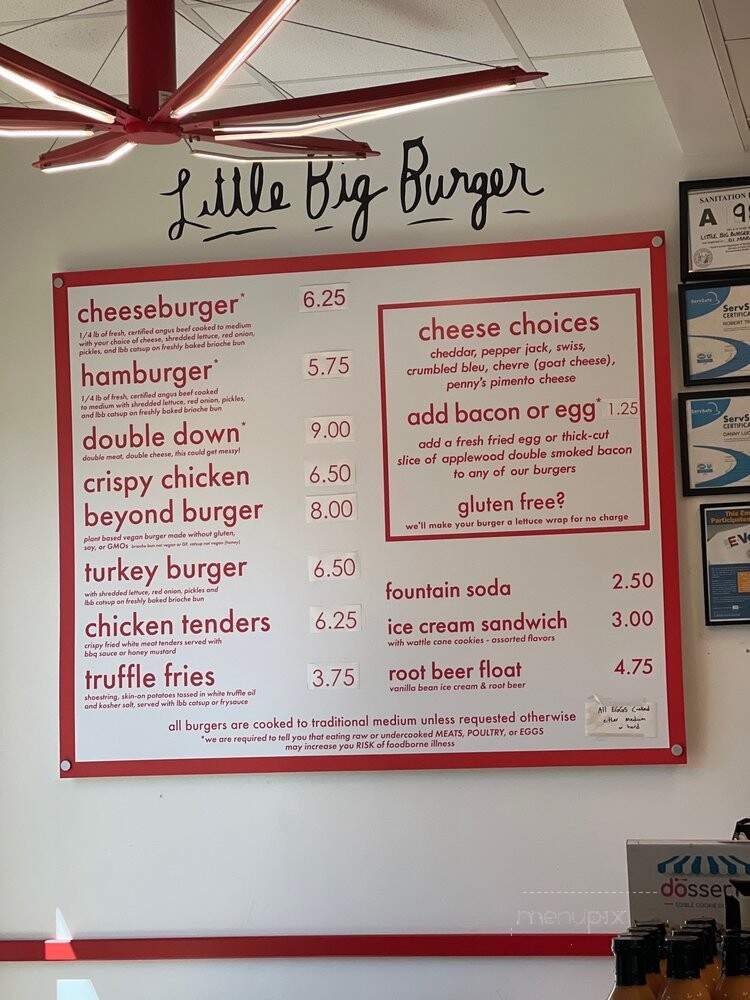 Little Big Burger
cheeseburger* 6.25
1/4 lb of fresh, certified angus beef cooked to medium
with your choice of cheese, shredded lettuce, red onion,
pickles, and lbb catsup on freshly baked brioche bun
hamburger* 5.75
1/4 lb of fresh, certified angus beef cooked
to medium with shredded lettuce, red onion, pickles,
and lbb catsup on freshly baked brioche bun
double down* 9.00
double meat, double cheese, this could get messy!
crispy chicken 6.50
beyond burger 8.00
plant based vegan burger made without gluten,
soy, or GMOs brioche bun not vegan or GF, catsup not vegan (honey)
turkey burger 6.50
with shredded lettuce, red onion, pickles and
lbb catsup on freshly baked brioche bun
chicken tenders 6.25
crispy fried white meat tenders served with
bbq sauce or honey mustard
truffle fries 3.75
shoestring, skin-on potatoes tossed in white truffle oil
and kosher salt, served with lbb catsup or frysauce
cheese choices
cheddar, pepper jack, swiss,
crumbled bleu, chevre (goat cheese),
penny's pimento cheese
add bacon or egg* 1.25
add a fresh fried egg or thick-cut
slice of applewood double smoked bacon
to any of our burgers
gluten free?
we'll make your burger a lettuce wrap for no charge
fountain soda 2.50
ice cream sandwich 3.00
with waffle cone cookies - assorted flavors
root beer float 4.75
vanilla bean ice cream & root beer
all burgers are cooked to traditional medium unless requested otherwise
*we are required to tell you that eating raw or undercooked MEATS, POULTRY, or EGGS
may increase you RISK of foodborne illness
All EGGS Cooked
either medium
or hard
SANITATION
A 9
LITTLE BIG BURGER
ServSafe
ServS
CERTIFICA
ROBERT
ServSafe
ServS
CERTIFICA
DANNY LUC
This Em
Participates
E Ve
dosser
EDIBLE COOKIE D
menupix